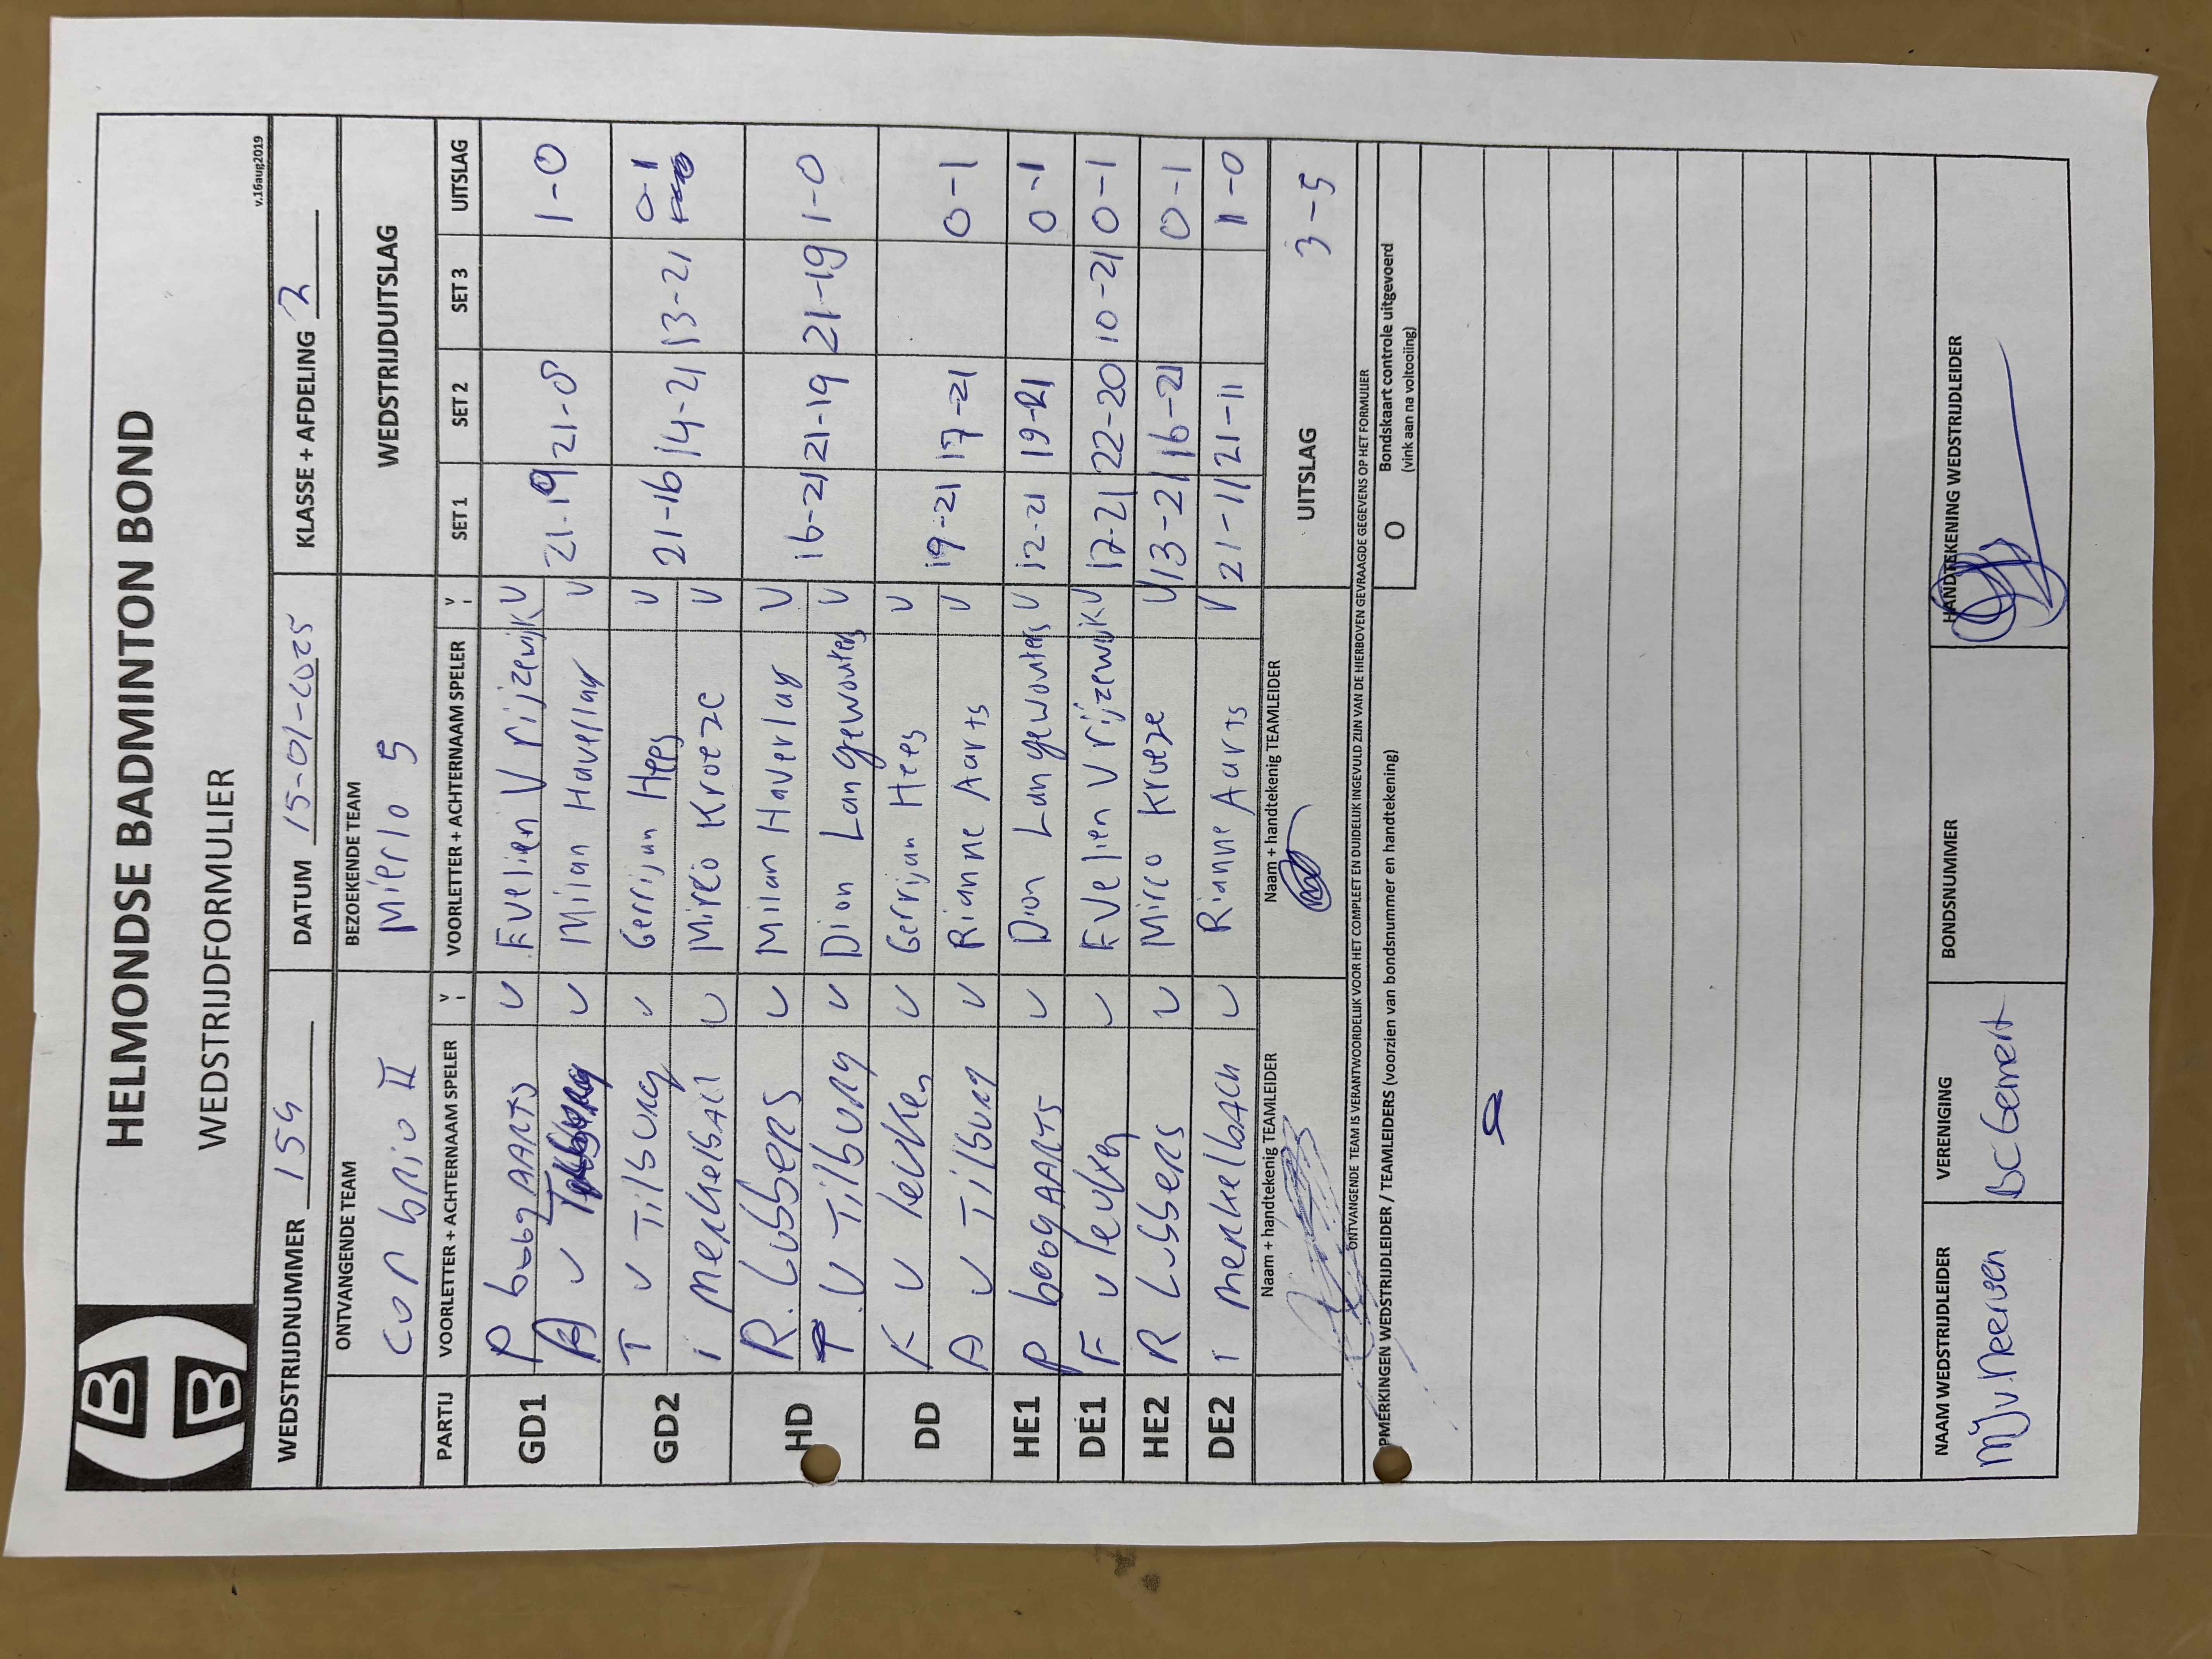 HELMONDSE BADMINTON BOND
WEDSTRIJDFORMULIER
v.16aug2019
WEDSTRIJDNUMMER 154 DATUM 15-01-2025 KLASSE + AFDELING 2
ONTVANGENDE TEAM BEZOEKENDE TEAM WEDSTRIJDUITSLAG
con brio II Mierlo 5
PARTIJ VOORLETTER + ACHTERNAAM SPELER V VOORLETTER + ACHTERNAAM SPELER V SET 1 SET 2 SET 3 UITSLAG
GD1 P boogAARTS V Evelien Vrijzewijk V
A v Tilburg V Milan Haverlag V 21-19 21-8 1-0
GD2 T v Tilburg V Gerrijan Hees V 0-1
i merkelbAch V Mirco Kroeze V 21-16 14-21 13-21
HD R. Lubbers V Milan Haverlag V
T. v Tilburg V Dion Langewouters V 16-21 21-19 21-19 1-0
DD K v leuken V Gerrijan Hees V
A v Tilburg V Rianne Aarts V 19-21 17-21 0-1
HE1 P boogAARTS V Dion Langewouters V 12-21 19-21 0-1
DE1 F v leuken V Evelien Vrijzewijk V 17-21 22-20 10-21 0-1
HE2 R Lubbers V Mirco Kroeze V 13-21 16-21 0-1
DE2 i merkelbAch V Rianne Aarts V 21-11 21-11 1-0
Naam + handtekenig TEAMLEIDER Naam + handtekenig TEAMLEIDER UITSLAG 3-5
ONTVANGENDE TEAM IS VERANTWOORDELIJK VOOR HET COMPLEET EN DUIDELIJK INGEVULD ZIJN VAN DE HIERBOVEN GEVRAAGDE GEGEVENS OP HET FORMULIER
PMERKINGEN WEDSTRIJDLEIDER / TEAMLEIDERS (voorzien van bondsnummer en handtekening) O Bondskaart controle uitgevoerd
(vink aan na voltooiing)
NAAM WEDSTRIJDLEIDER VERENIGING BONDSNUMMER HANDTEKENING WEDSTRIJDLEIDER
MJ v. Neerven BC Gemert